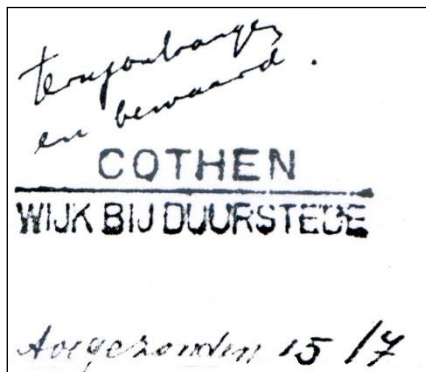 terugontvangen
en bewaard.
COTHEN
WIJK BIJ DUURSTEDE
Toegezonden 15/7